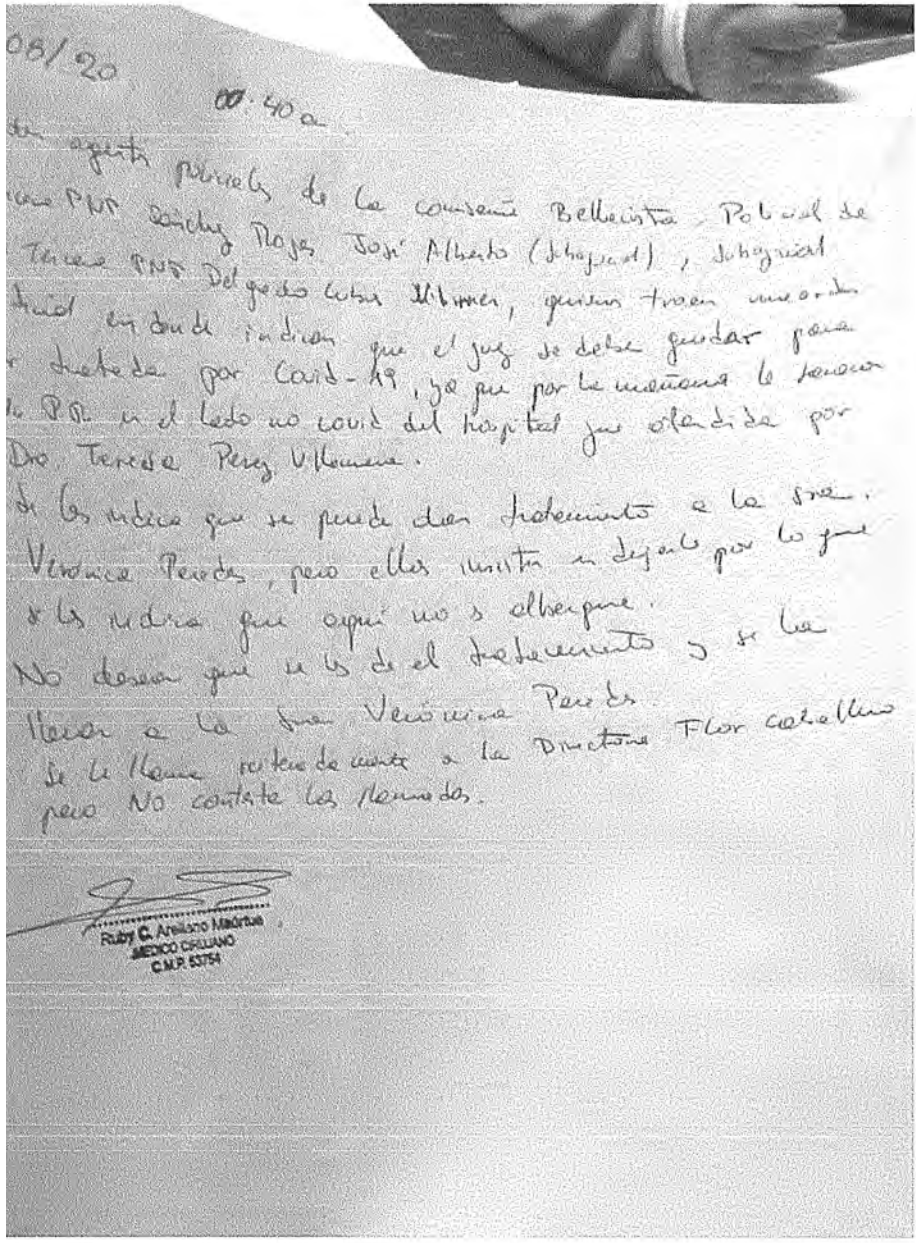 08/20
00:40 a
agentes policiales de la comisaria Bellavista. Policial de
PNP Sánchez Rojas José Alberto (Suboficial), Suboficial
Tercera PNP Delgado Wilmer, quienes traen una orden
en donde indican que el juez se debe quedar para
tratada por Covid-19, ya que por la mañana le
PR en el lado no covid del hospital fue atendida por
Dra. Teresa Perez Villanueva.
se les indica que se puede dar tratamiento a la sra.
Verónica Paredes, pero ellos insisten en dejarla por lo que
se les indica que aqui no es albergue.
No desean que se les de el tratamiento y se la
llevan a la Sra Verónica Paredes.
Se le llama reiteradamente a la Directora Flor Caballero
pero No contesta las llamadas.
Ruby C. Arellano
MEDICO CIRUJANO
C.M.P. 53754